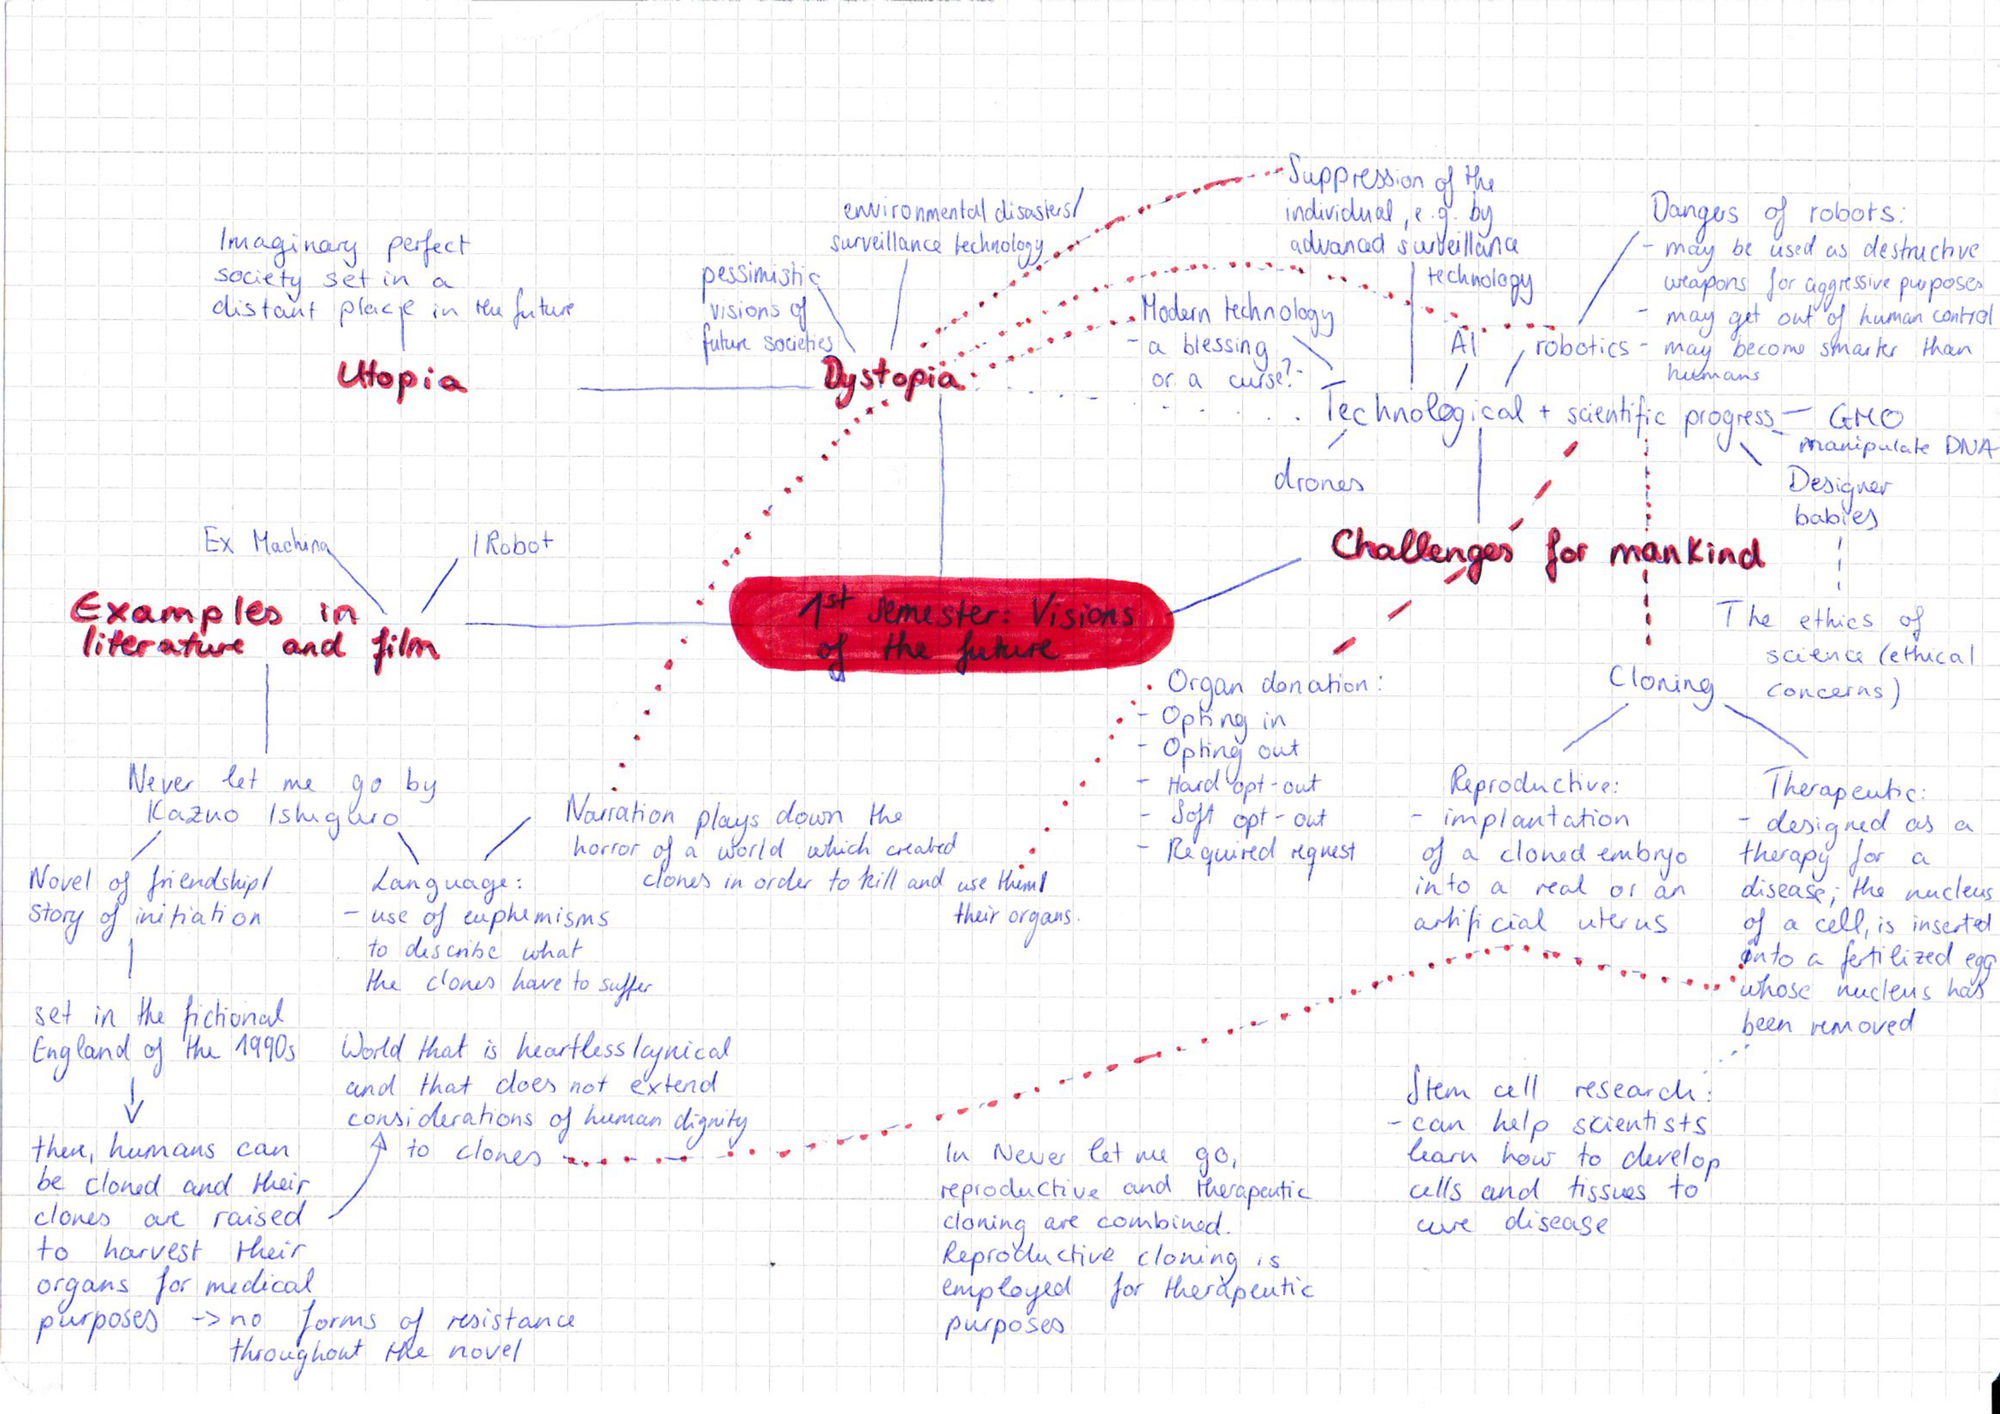 Imaginary perfect
society set in a
distant place in the future
Utopia
pessimistic
visions of
future societies
environmental disasters/
surveillance technology
Dystopia
Suppression of the
individual, e.g. by
advanced surveillance
technology
Modern technology
- a blessing
or a curse?
AI
robotics
Dangers of robots:
- may be used as destructive
weapons for aggressive purposes
- may get out of human control
- may become smarter than
humans
Technological + scientific progress
GMO
manipulate DNA
drones
Designer
babies
Challenges for mankind
The ethics of
science (ethical
concerns)
Ex Machina
I Robot
Examples in
literature and film
1st semester: Visions
of the future
Organ donation:
- Opting in
- Opting out
- Hard opt-out
- Soft opt-out
- Required request
Cloning
Reproductive:
- implantation
of a cloned embryo
into a real or an
artificial uterus
Therapeutic:
- designed as a
therapy for a
disease; the nucleus
of a cell, is inserted
into a fertilized egg
whose nucleus has
been removed
Stem cell research:
- can help scientists
learn how to develop
cells and tissues to
cure disease
Never let me go by
Kazuo Ishiguro
Novel of friendship/
story of initiation
set in the fictional
England of the 1990s
there, humans can
be cloned and their
clones are raised
to harvest their
organs for medical
purposes -> no forms of resistance
throughout the novel
Language:
- use of euphemisms
to describe what
the clones have to suffer
Narration plays down the
horror of a world which created
clones in order to kill and use them/
their organs.
World that is heartless/cynical
and that does not extend
considerations of human dignity
to clones
In Never let me go,
reproductive and therapeutic
cloning are combined.
Reproductive cloning is
employed for therapeutic
purposes